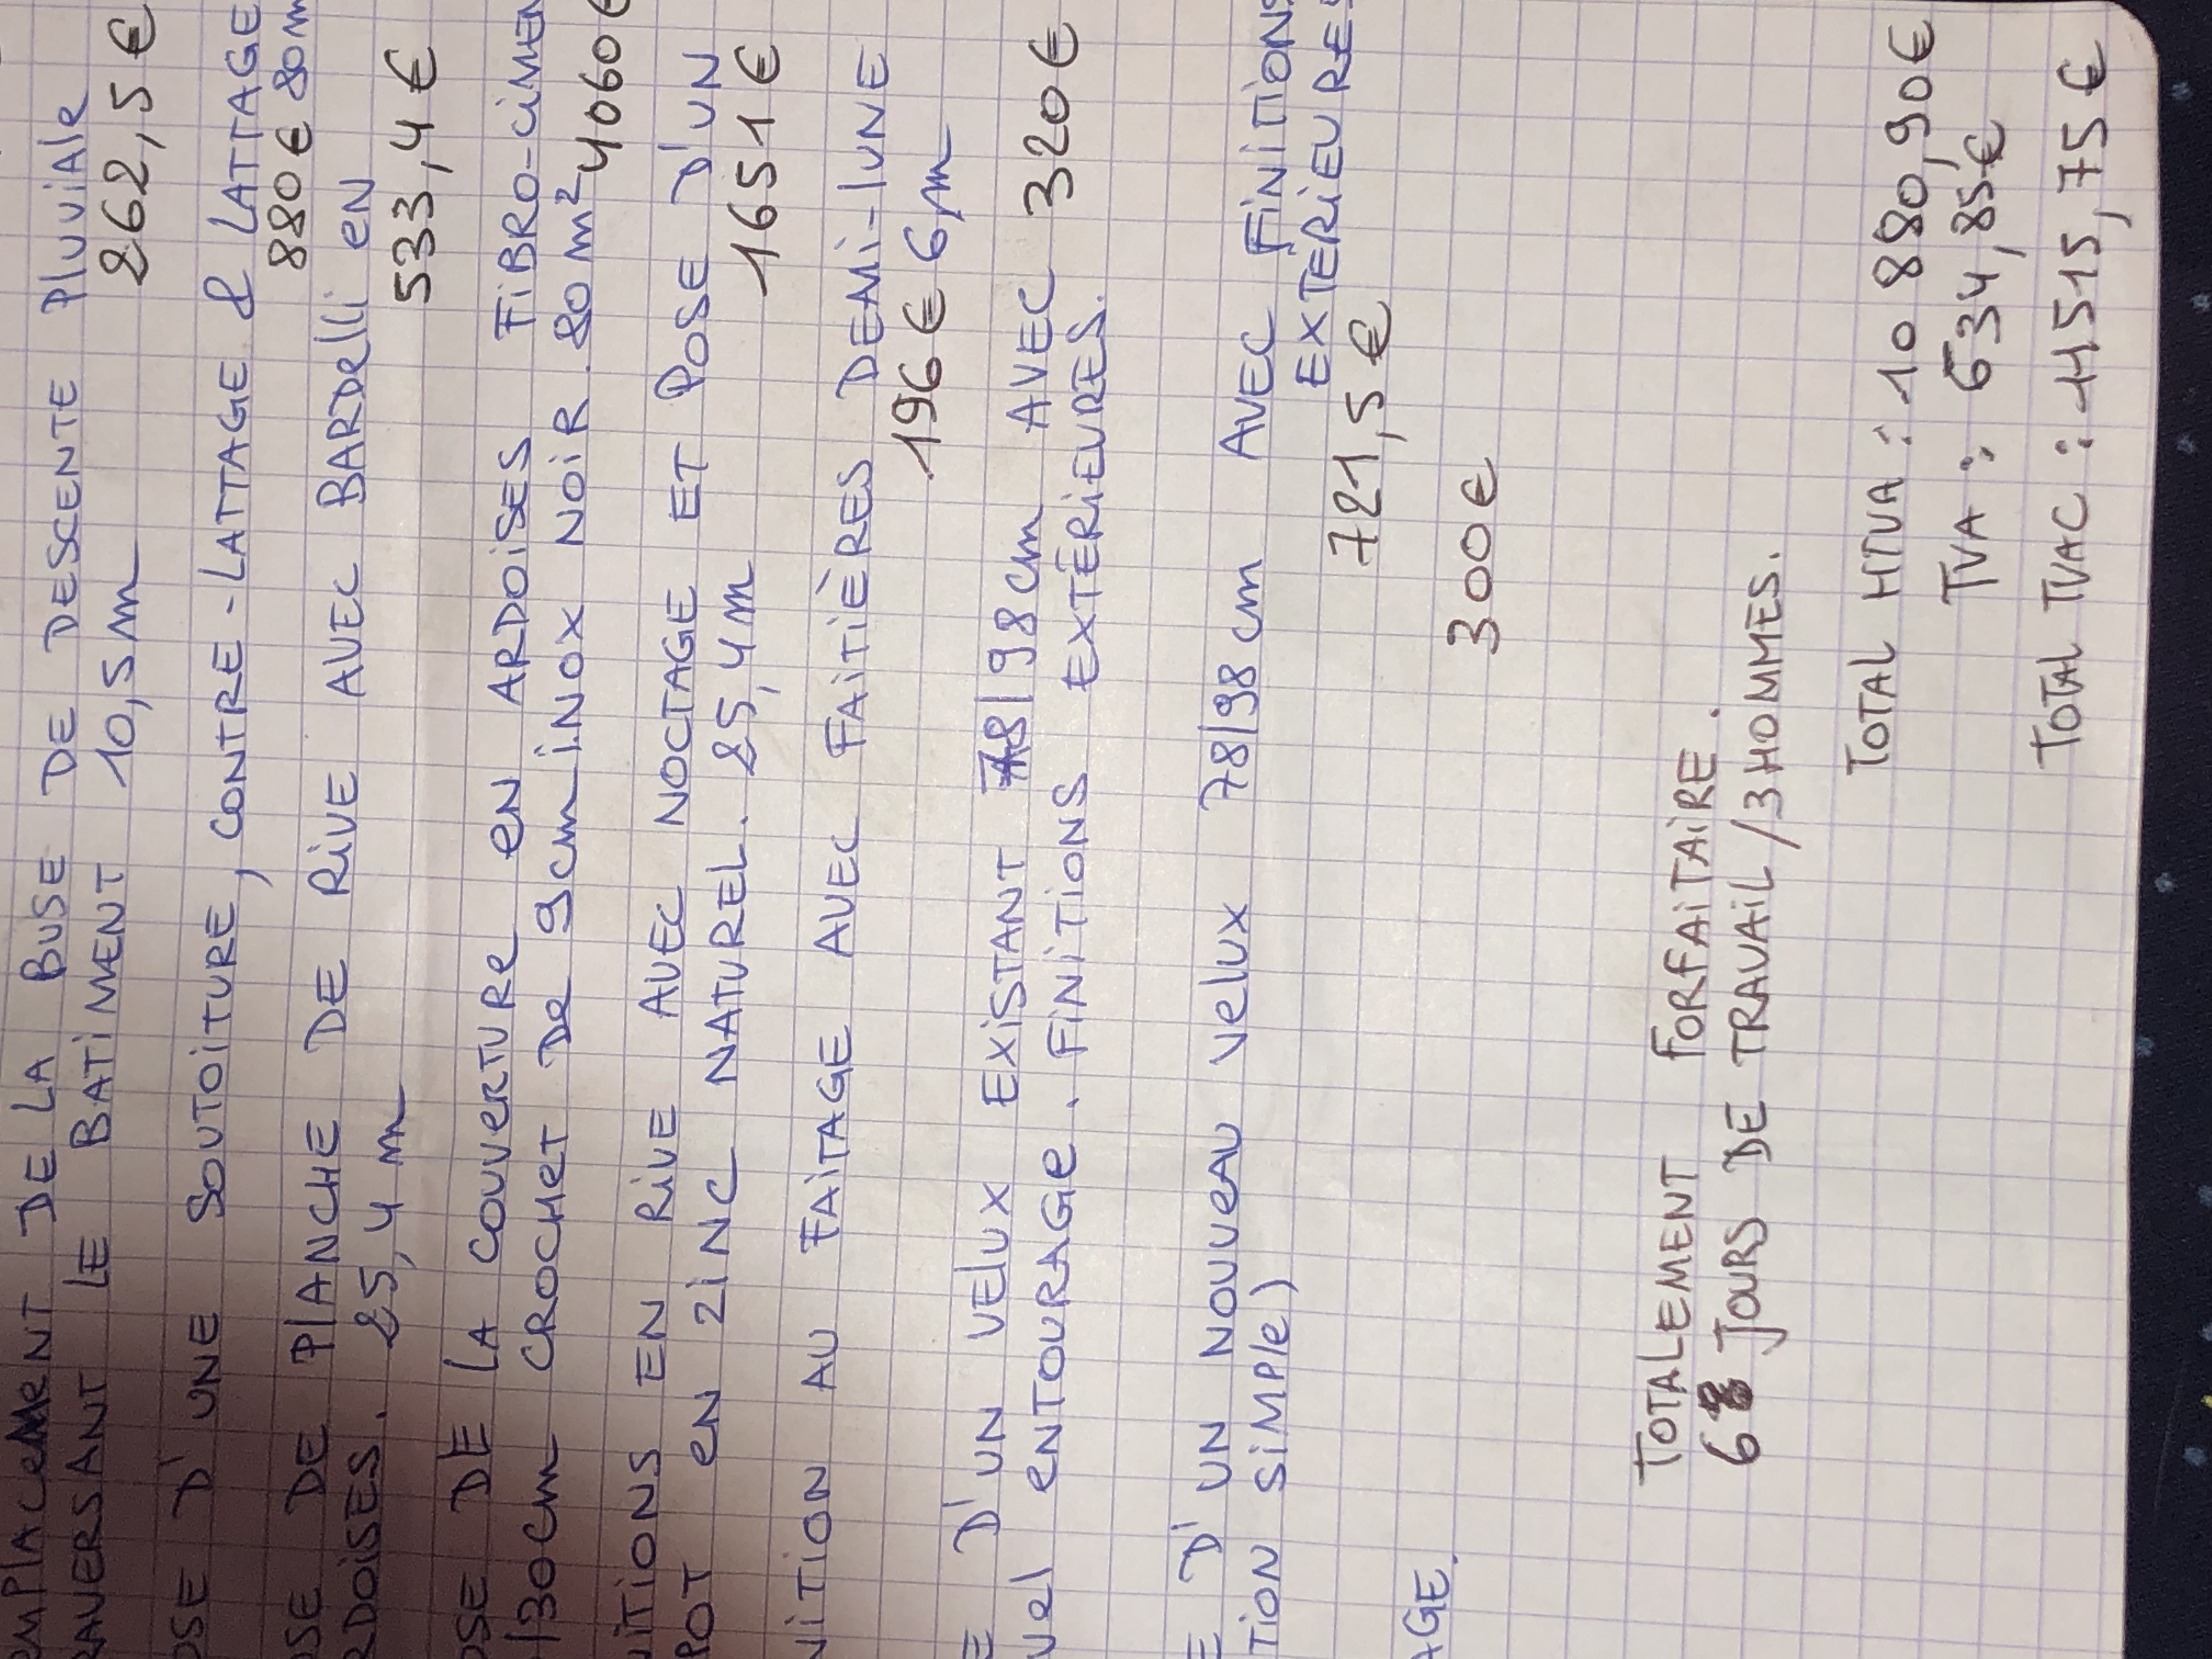 DE LA BUSE DE DESCENTE PluViAle
LE BATIMENT 10,5m 262,5€
D'UNE SOUTOITURE, CONTRE-LATTAGE & LATTAGE
880€
DE PLANCHE DE RIVE AVEC BARDelli eN
25,4m 533,4€
DE LA COUVERTURE eN ARDOISES FiBRO-CIMEN
/30cm CROCHET De 9cm iNOX NOIR. 80m² 4060€
EN RIVE AVEC NOCTAGE ET POSE D'UN
eN ZiNC NATUREL. 25,4m 1651€
AU FAITAGE AVEC FAITIÈRES DEMI-lUNE
196€ 6m
D'UN VELUX EXISTANT 78/98cm AVEC 320€
eNTOURAGe. FINITIONS EXTÉRIEURES.
D'UN NOUVEAU Velux 78/98cm AVEC FINITIONS
SIMPle) EXTERIEURES
721,5€
AGE. 300€
TOTALEMENT FORFAITAIRE.
6 JOURS DE TRAVAIL/3HOMMES.
TOTAL HTVA : 10 880,90€
TVA : 634,85€
TOTAL TVAC : 11515,75€